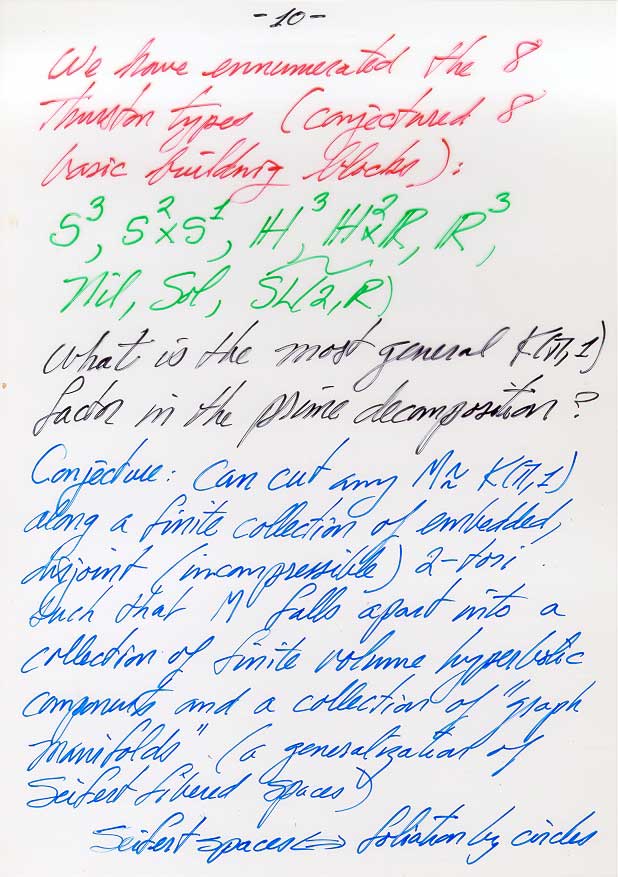 -10-
We have ennumerated the 8
Thurston types (conjectured 8
basic building blocks):
S³, S²×S¹, ℍ³, ℍ²×ℝ, ℝ³,
Nil, Sol, S͂L͂(2,R)
What is the most general K(π,1)
factor in the prime decomposition?
Conjecture: Can cut any M ≃ K(π,1)
along a finite collection of embedded,
disjoint (incompressible) 2-tori
such that M falls apart into a
collection of finite volume hyperbolic
components and a collection of "graph
manifolds". (a generalization of
Seifert fibered spaces)
Seifert spaces ⇔ foliation by circles